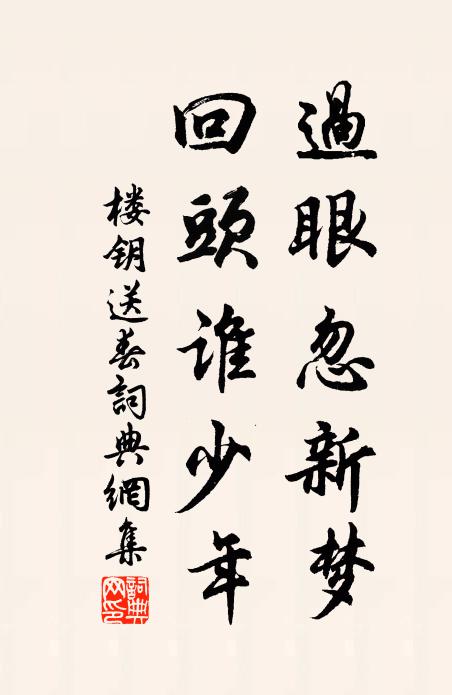 過眼忽新梦
回頭誰少年
楼钥送春詞典網集
詞典網印